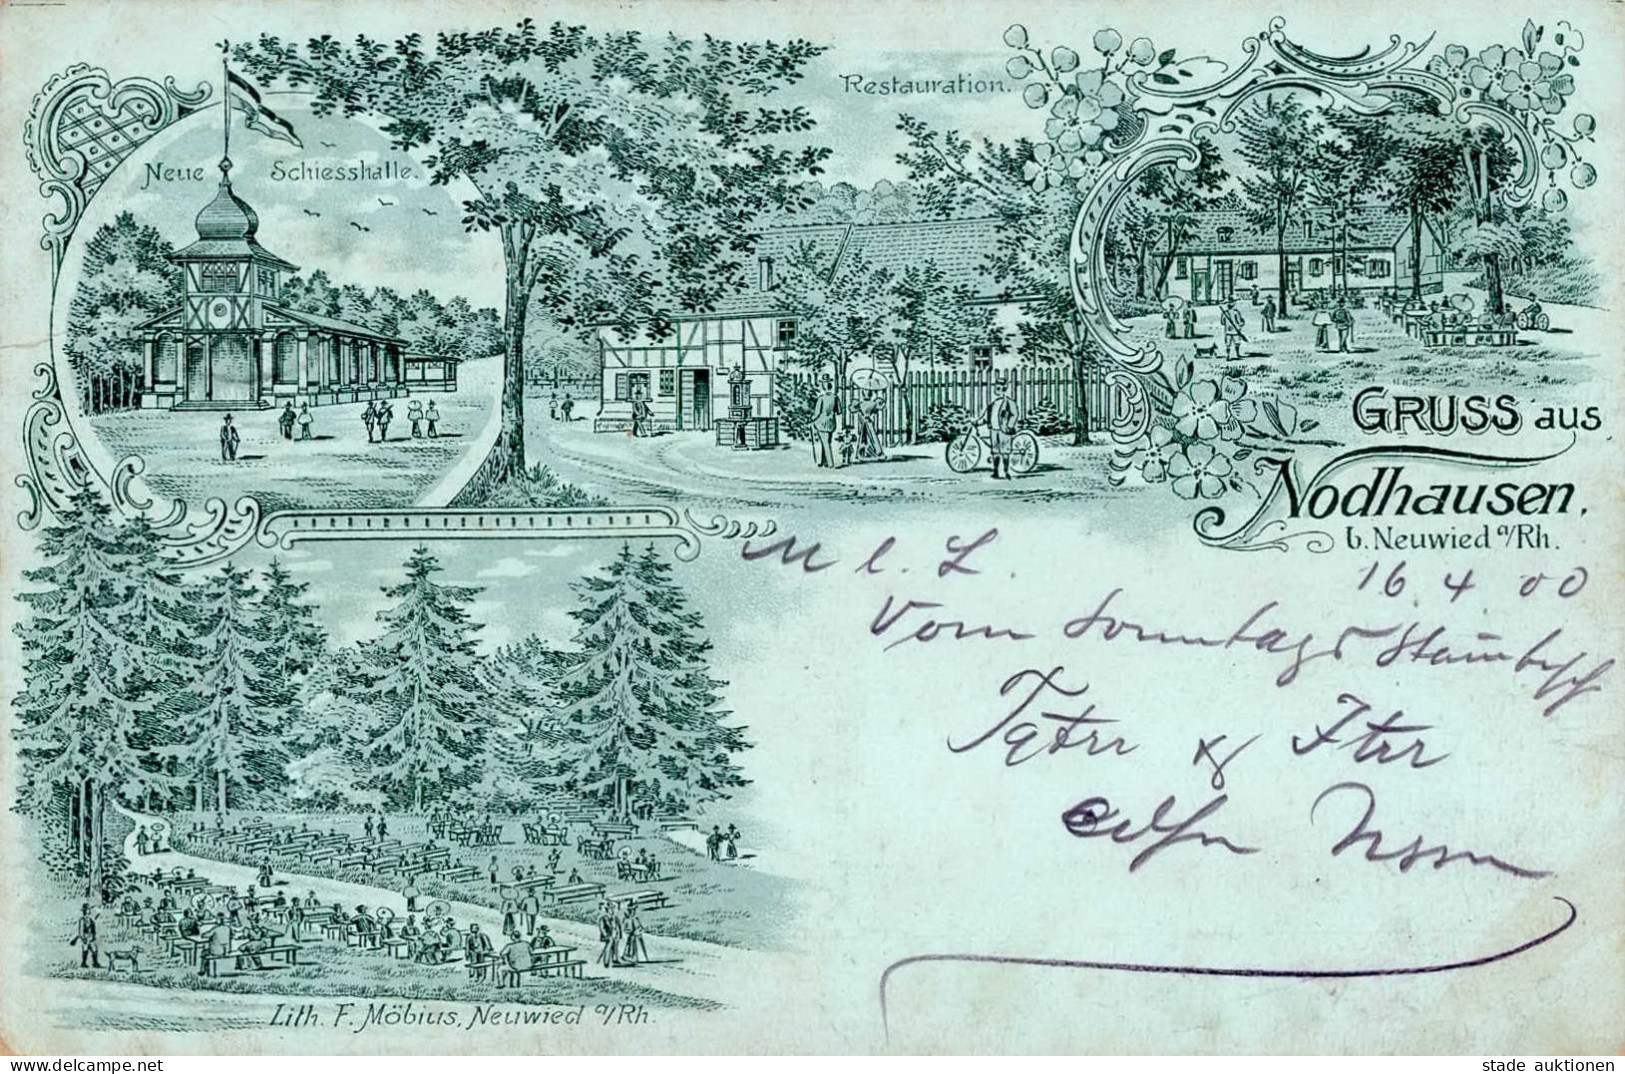 Neue Schiesshalle.
Restauration.
GRUSS aus
Nodhausen,
b. Neuwied a/Rh.
16.4.00
M l. L.
Vom Sonntags
&
Lith. F. Möbius, Neuwied a/Rh.
stade auktionen